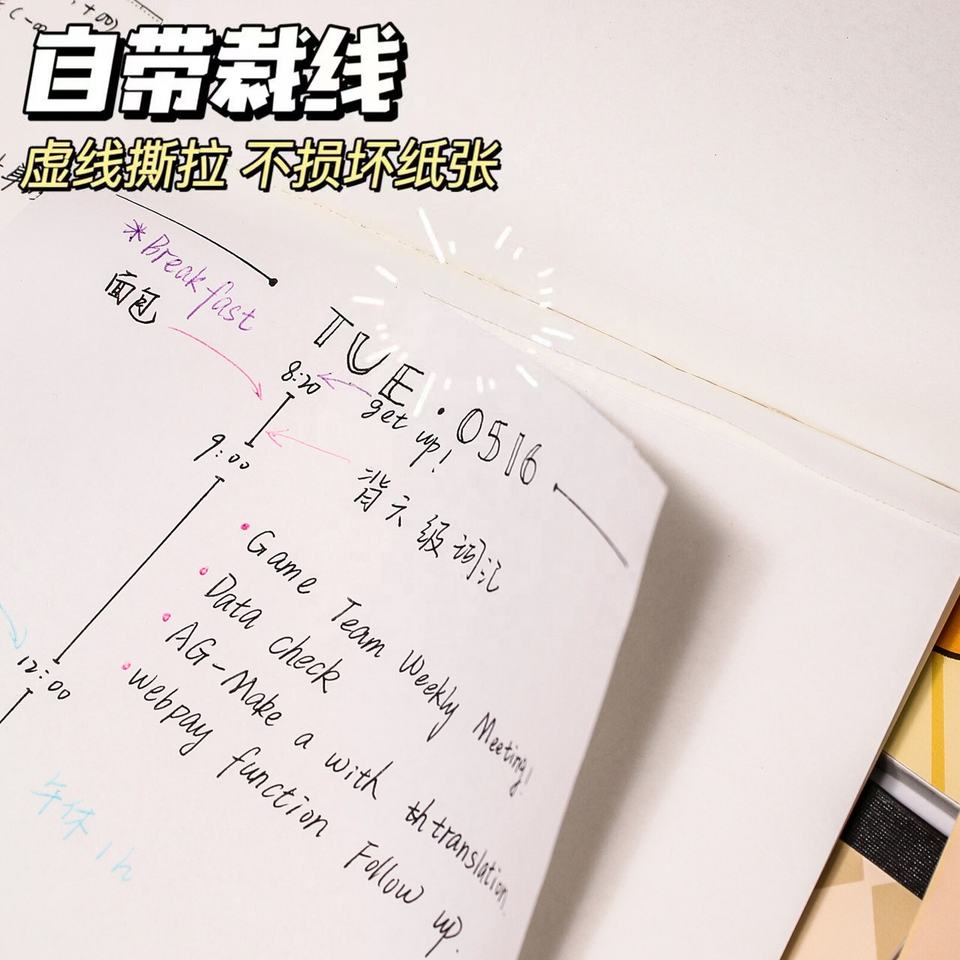 (-∞, +∞)
自带裁线
虚线撕拉 不损坏纸张
*Breakfast
面包
TUE. 0516
8:20
get up!
9:00
背六级词汇
• Game Team Weekly Meeting!
• Data check
• AG-Make a with th translation
• webpay function Follow up.
12:00
午休 1h